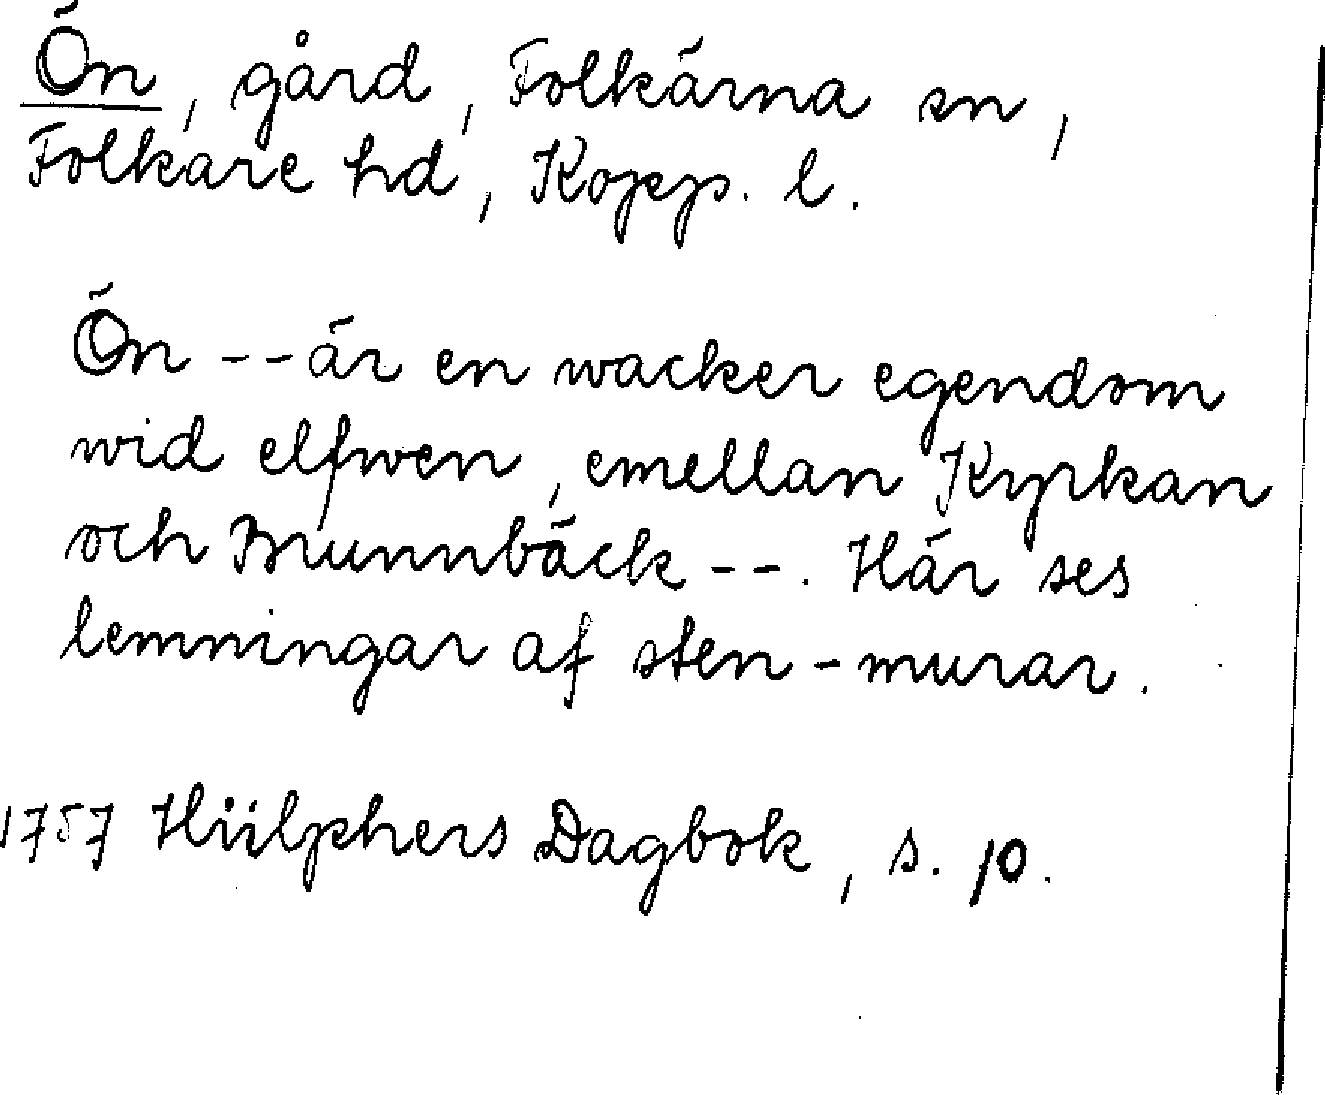 Ön, gård, Folkärna sn,
Folkare hd, Kopp. l.
Ön -- är en wacker egendom
wid elfwen, emellan Kyrkan
och Brunnbäck --. Här ses
lemningar af sten-murar.
1757 Hülphers Dagbok, s. 10.